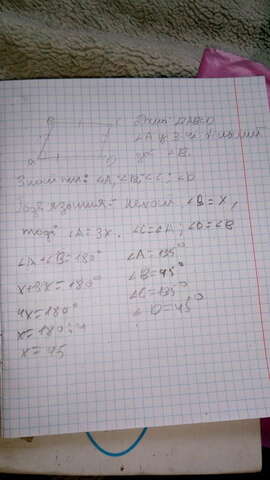 B C
A D
Дано: ABCD
∠A у 3 більший
за ∠B.
Знайти: ∠A, ∠B, ∠C, ∠D
Розв'язання: Нехай ∠B = x,
тоді ∠A = 3x. ∠C = ∠A; ∠D = ∠B
∠A + ∠B = 180°
x + 3x = 180°
4x = 180°
x = 180 : 4
x = 45
∠A = 135°
∠B = 45°
∠C = 135°
∠D = 45°